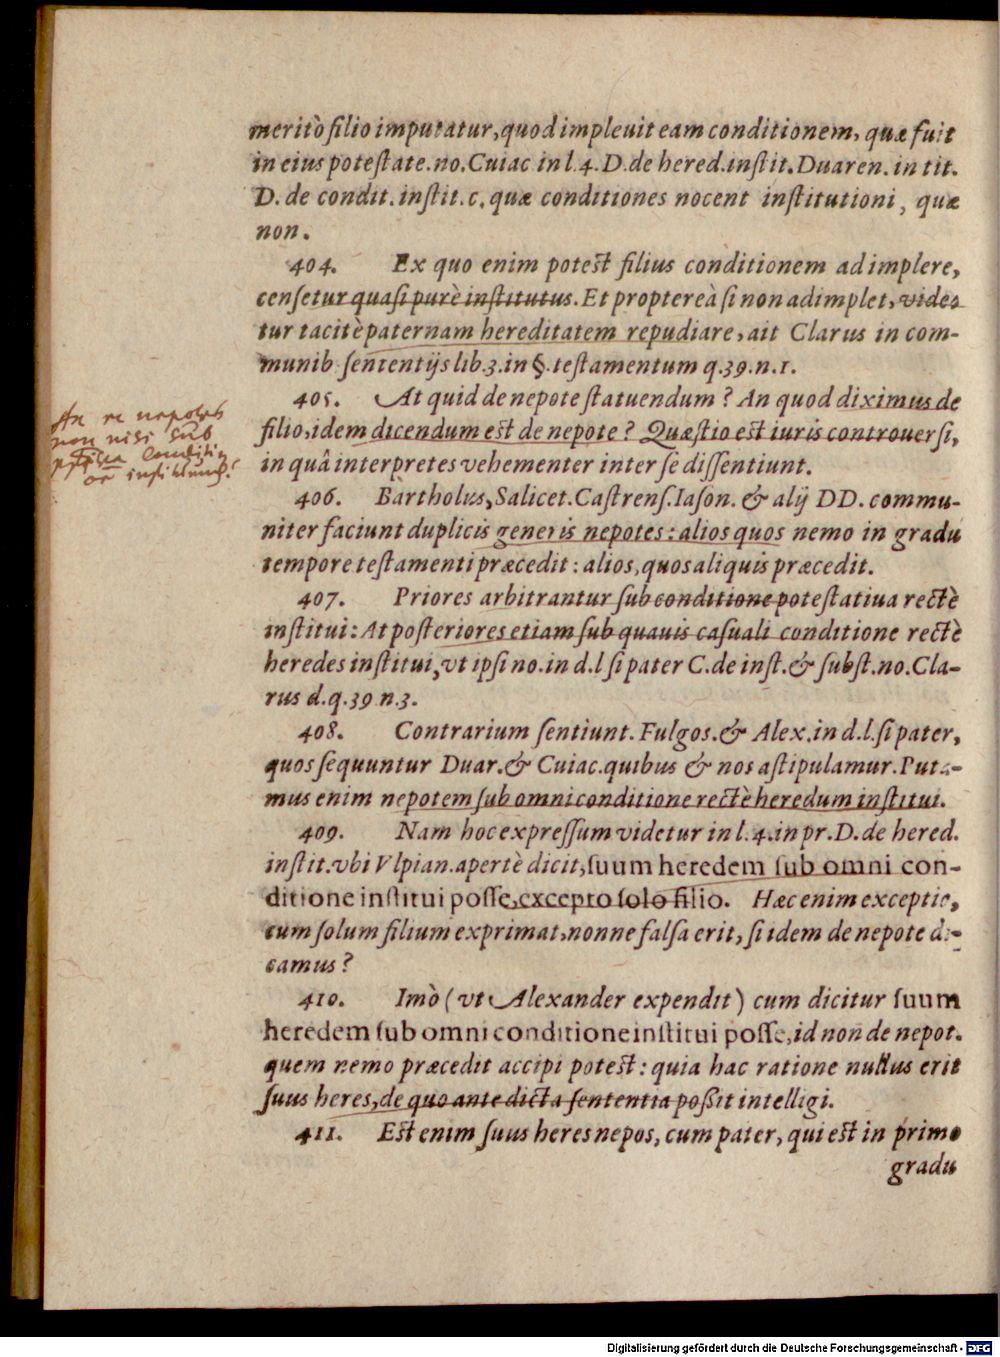 meritò filio imputatur, quod impleuit eam conditionem, quæ fuit
in eius potestate. no. Cuiac in l. 4. D. de hered. instit. Duaren. in tit.
D. de condit. instit. c. quæ conditiones nocent institutioni, quæ
non.
404. Ex quo enim potest filius conditionem adimplere,
censetur quasi purè institutus. Et proptereà si non adimplet, vide-
tur tacitè paternam hereditatem repudiare, ait Clarus in com-
munib. sententijs lib. 3. in §. testamentum q. 39. n. 1.
405. At quid de nepote statuendum? An quod diximus de
filio, idem dicendum est de nepote? Quæstio est iuris controuersi,
in quâ interpretes vehementer inter se dissentiunt.
An nepotes
non nisi sub
conditio
406. Bartholus, Salicet. Castrens. Iason. & alij DD. commu-
niter faciunt duplicis generis nepotes: alios quos nemo in gradu
tempore testamenti præcedit: alios, quos aliquis præcedit.
407. Priores arbitrantur sub conditione potestatiua rectè
institui: At posteriores etiam sub quauis casuali conditione rectè
heredes institui, vt ipsi no. in d. l si pater C. de inst. & subst. no. Cla-
rus d. q. 39 n. 3.
408. Contrarium sentiunt. Fulgos. & Alex. in d. l. si pater,
quos sequuntur Duar. & Cuiac. quibus & nos astipulamur. Puta-
mus enim nepotem sub omni conditione rectè heredum institui.
409. Nam hoc expressum videtur in l. 4. in pr. D. de hered.
instit. vbi Vlpian. apertè dicit, suum heredem sub omni con-
ditione institui posse, excepto solo filio. Hæc enim exceptio,
cum solum filium exprimat, nonne falsa erit, si idem de nepote di-
camus?
410. Imò (vt Alexander expendit) cum dicitur suum
heredem sub omni conditione institui posse, id non de nepot.
quem nemo præcedit accipi potest: quia hac ratione nullus erit
suus heres, de quo ante dicta sententia poßit intelligi.
411. Est enim suus heres nepos, cum pater, qui est in primo
gradu
Digitalisierung gefördert durch die Deutsche Forschungsgemeinschaft - DFG